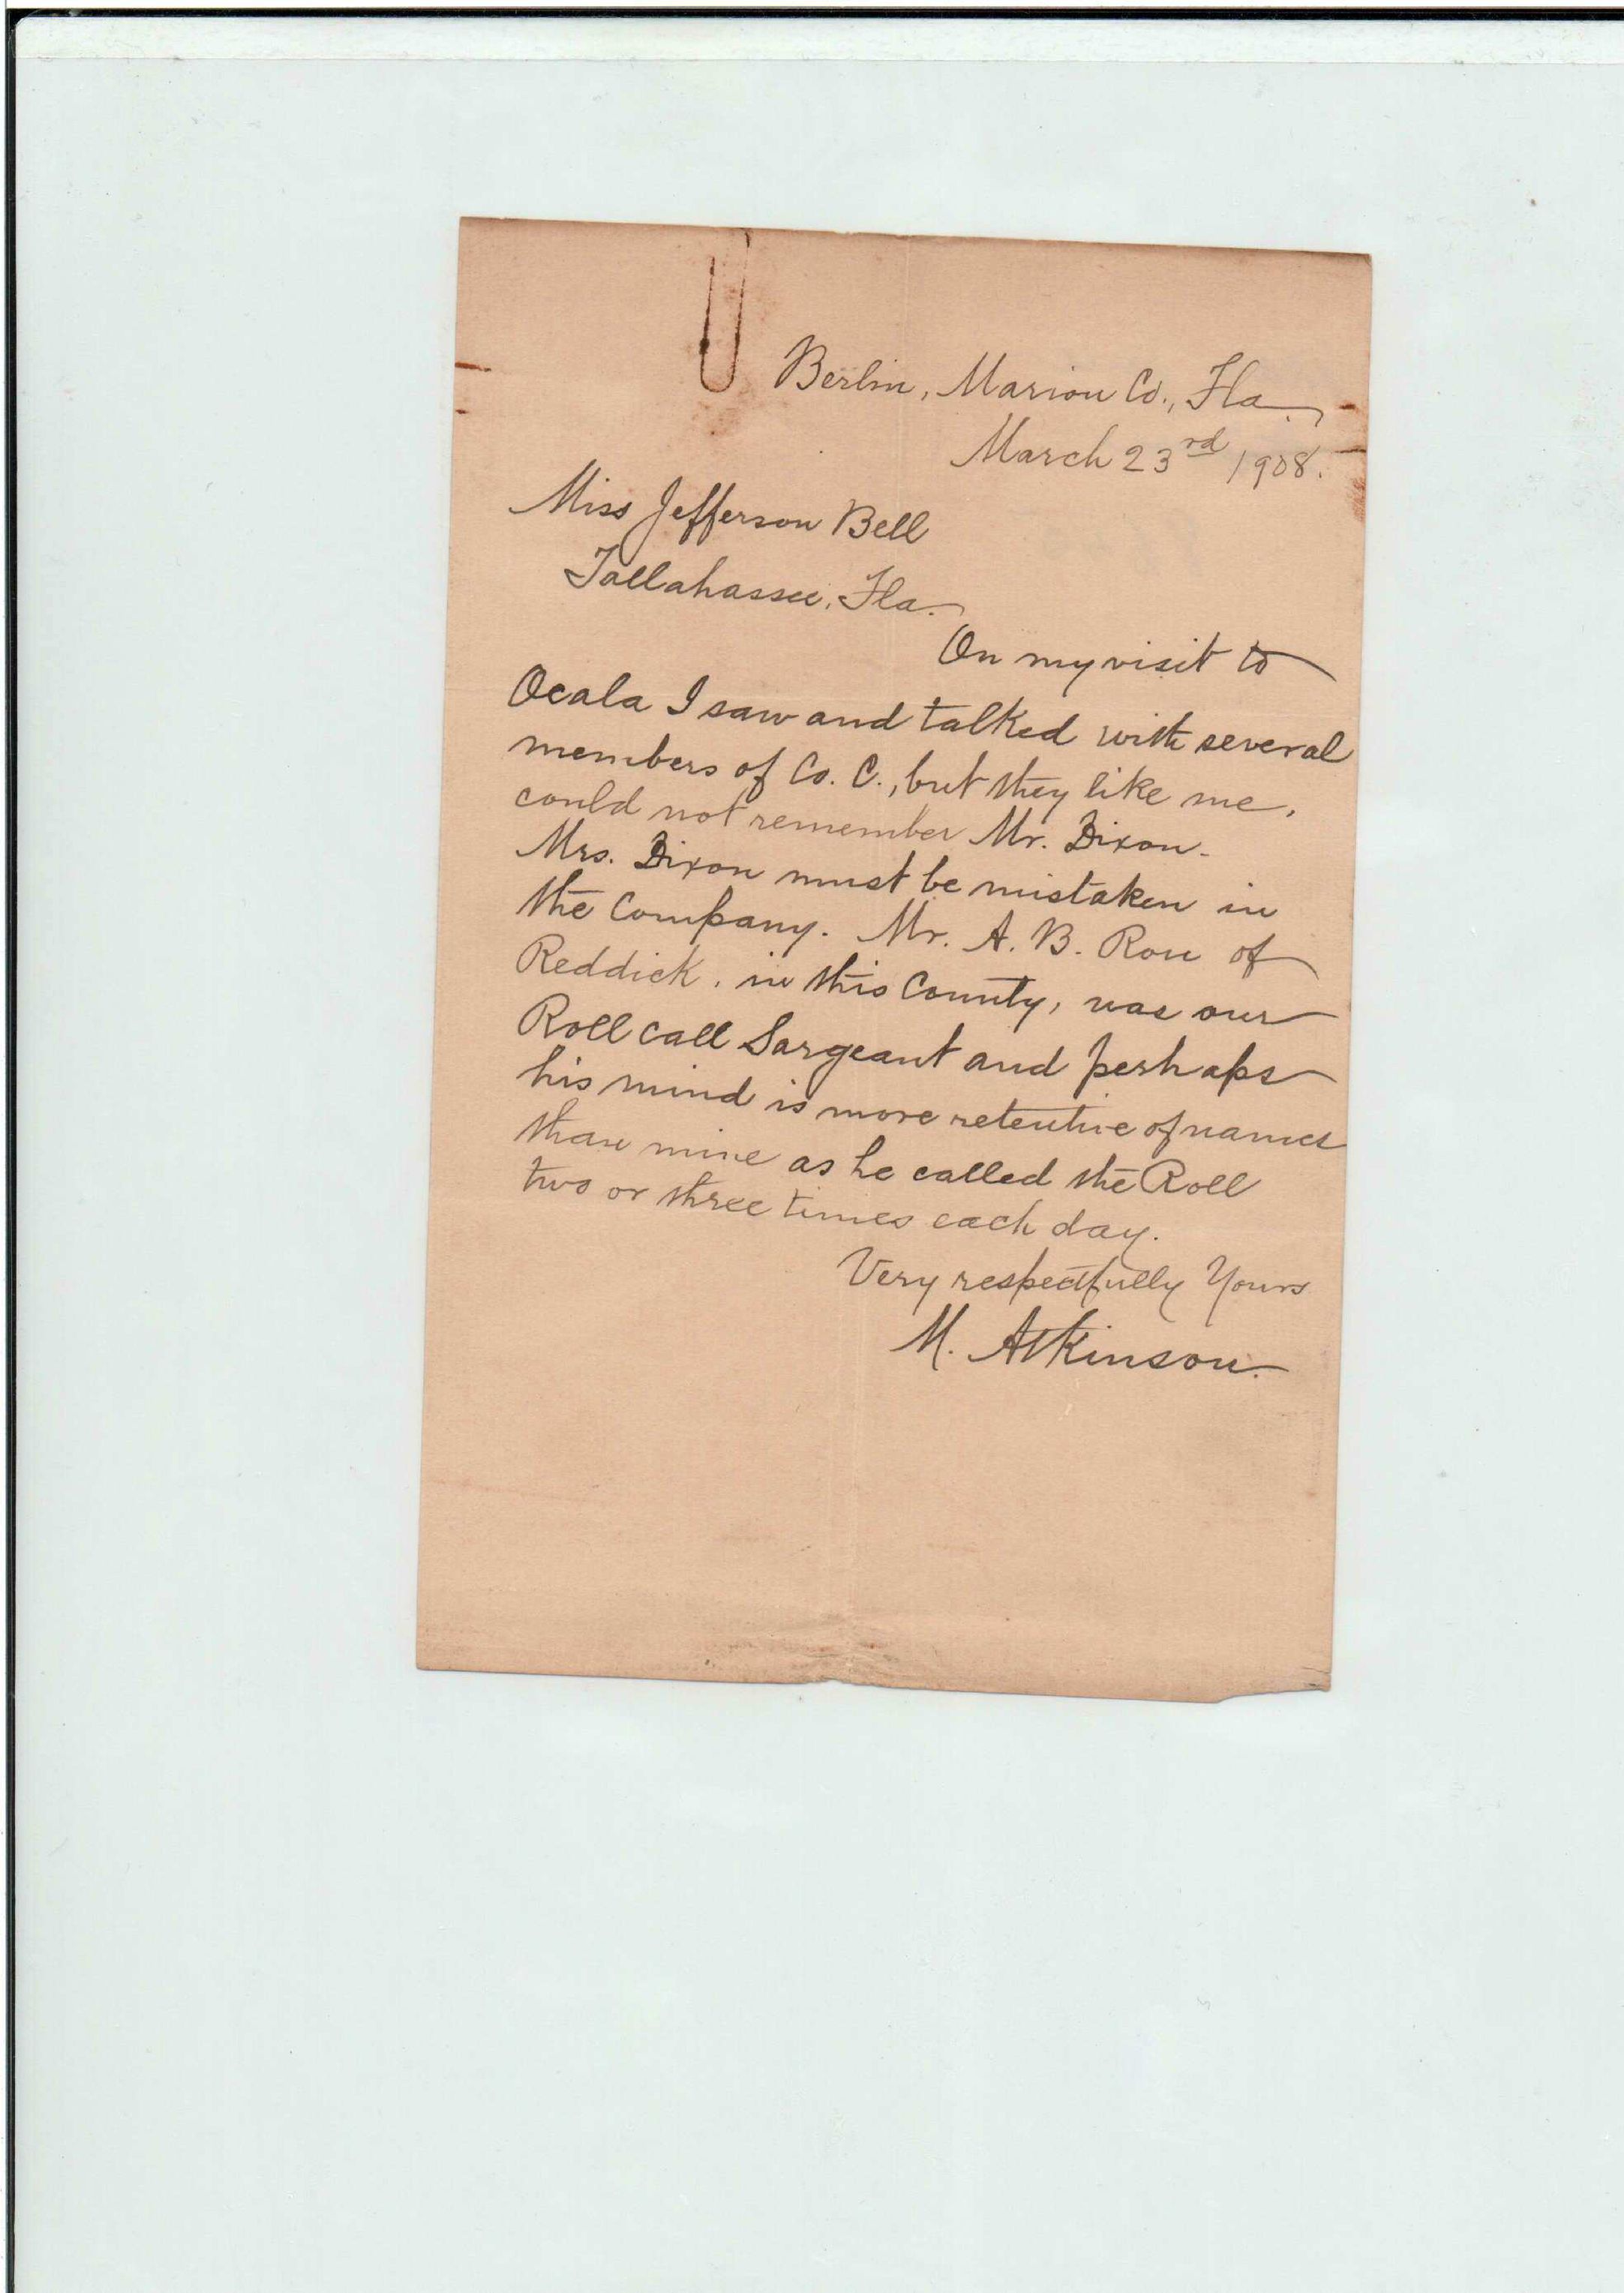 Berlin, Marion Co., Fla.
March 23rd 1908.
Miss Jefferson Bell
Tallahassee, Fla.
On my visit to
Ocala I saw and talked with several
members of Co. C., but they like me,
could not remember Mr. Dixon.
Mrs. Dixon must be mistaken in
the Company. Mr. A. B. of
Reddick, in this County, was our
Roll call Sargeant and perhaps
his mind is more retentive of names
than mine as he called the Roll
two or three times each day.
Very respectfully Yours
M. Atkinson.